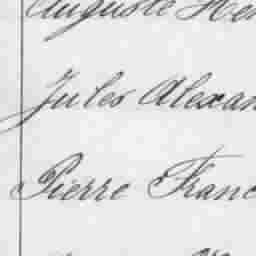 Auguste Hen
Jules Alexan
Pierre Franc